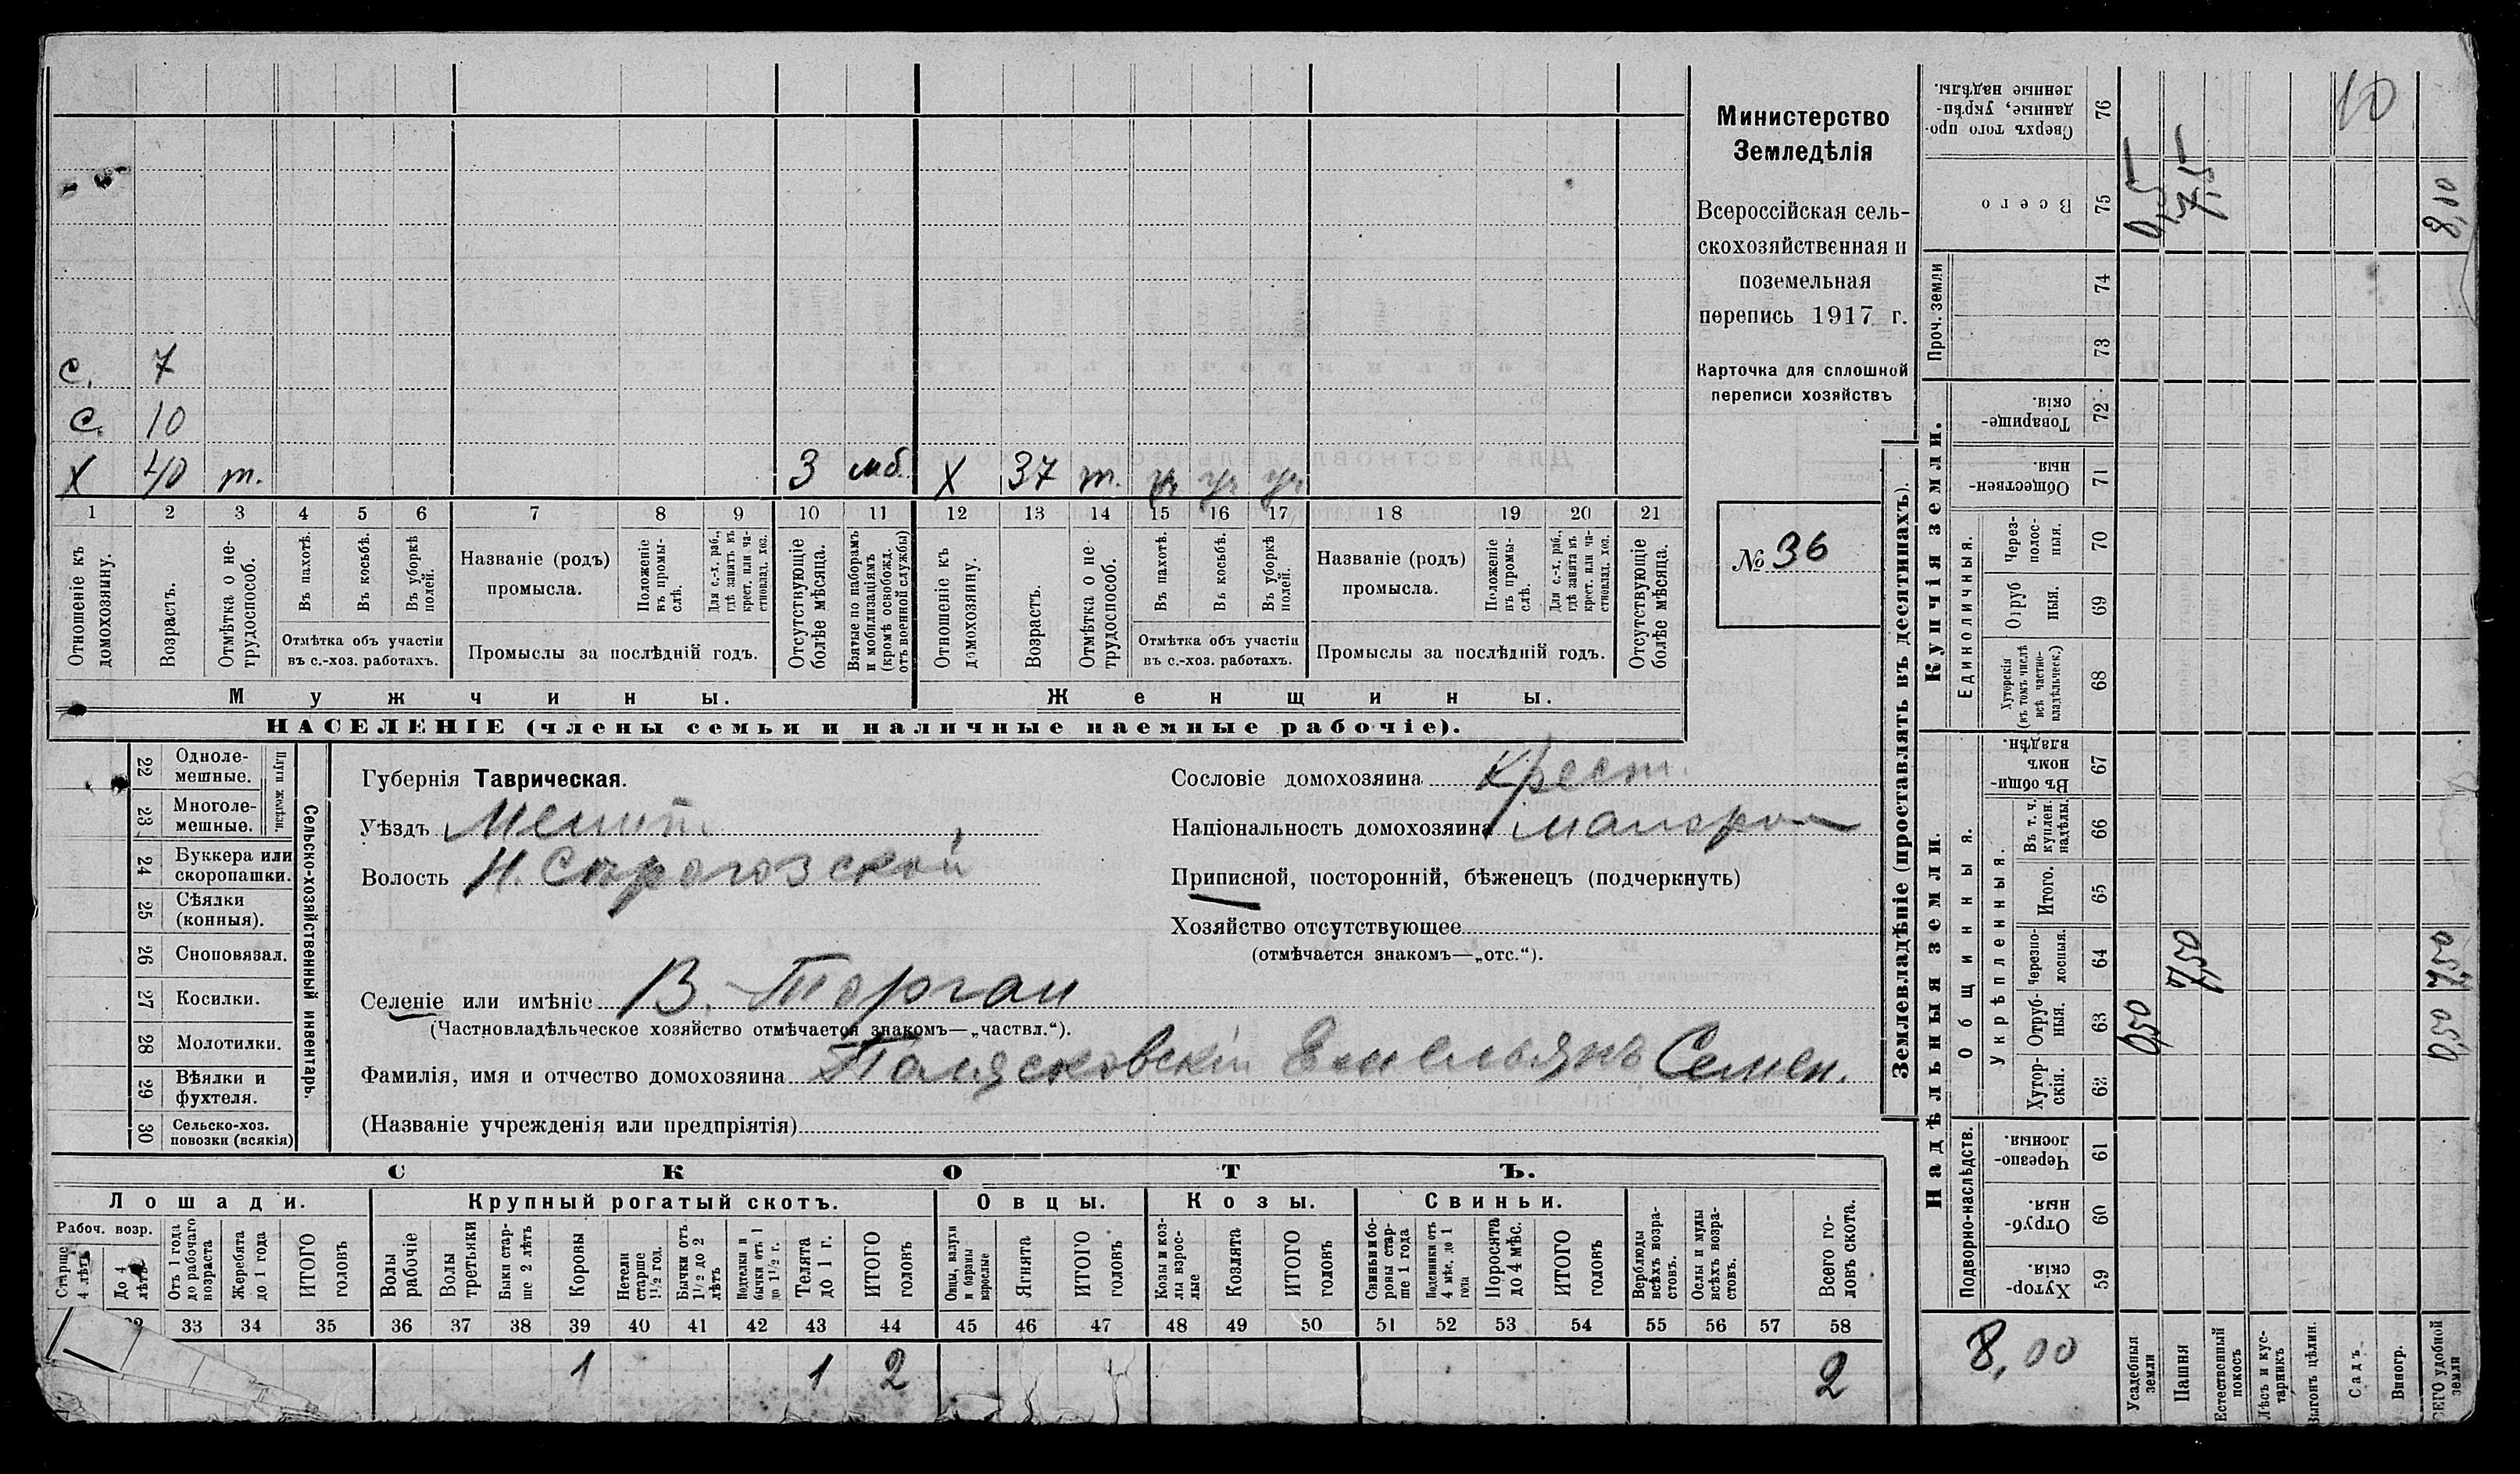 с. 7
с. 10
х 40 т. 3 мб. х 37 т. уч уч уч
1 2 3 4 5 6 7 8 9 10 11 12 13 14 15 16 17 18 19 20 21
Отношеніе къ домохозяину.
Возрастъ.
Отмѣтка о не-трудоспособ.
Въ пахотѣ.
Въ косьбѣ.
Въ уборкѣ полей.
Отмѣтка объ участіи
въ с.-хоз. работахъ.
Названіе (родъ)
промысла.
Положеніе въ промы-слѣ.
Для с.-х. раб., гдѣ занятъ въ крест. или ча-стновлад. хоз.
Промыслы за послѣдній годъ.
Отсутствующіе болѣе мѣсяца.
Взятые по наборамъ и мобилизаціямъ (кромѣ освобожд. отъ военной службы)
Отношеніе къ домохозяину.
Возрастъ.
Отмѣтка о не трудоспособ.
Въ пахотѣ.
Въ косьбѣ.
Въ уборкѣ полей.
Отмѣтка объ участіи
въ с.-хоз. работахъ.
Названіе (родъ)
промысла.
Положеніе въ промы-слѣ.
Для с.-х. раб., гдѣ занята въ крест. или ча-стновлад. хоз.
Промыслы за послѣдній годъ.
Отсутствующіе болѣе мѣсяца.
Мужчины. Женщины.
НАСЕЛЕНІЕ (члены семьи и наличные наемные рабочіе).
Министерство
Земледѣлія
Всероссійская сель-
скохозяйственная и
поземельная
перепись 1917 г.
Карточка для сплошной
переписи хозяйствъ
№ 36
Сельско-хозяйственный инвентарь.
Плуги желѣзн.
22 Одноле-мешные.
23 Многоле-мешные.
24 Буккера или скоропашки.
25 Сѣялки (конныя).
26 Сноповязал.
27 Косилки.
28 Молотилки.
29 Вѣялки и фухтеля.
30 Сельско-хоз. повозки (всякія)
Губернія Таврическая.
Уѣздъ Мелит.
Волость Н. Сърогозской
Селеніе или имѣніе В. Торгаи
(Частновладѣльческое хозяйство отмѣчается знакомъ—„частвл.“).
Фамилія, имя и отчество домохозяина Емельянъ Семен.
(Названіе учрежденія или предпріятія)
Сословіе домохозяина Крест.
Національность домохозяина малорос
Приписной, посторонній, бѣженецъ (подчеркнуть)
Хозяйство отсутствующее
(отмѣчается знакомъ—„отс.“).
СКОТЪ.
Лошади. Крупный рогатый скотъ. Овцы. Козы. Свиньи.
Рабоч. возр.
Старше 4 лѣтъ
До 4 лѣтъ
Отъ 1 года до рабочаго возраста
Жеребята до 1 года
ИТОГО головъ
Волы рабочіе
Волы третьяки
Быки стар-ше 2 лѣтъ
Коровы
Нетели старше 1½ год.
Бычки отъ 1½ до 2 лѣтъ
Подтелки и бычки отъ 1 до 1½ г.
Телята до 1 г.
ИТОГО головъ
Овцы, валухи и бараны взрослые
Ягнята
ИТОГО головъ
Козы и коз-лы взрос-лые
Козлята
ИТОГО головъ
Свиньи и бо-ровы стар-ше 1 года
Подсвинки отъ 4 мѣс. до 1 года
Поросята до 4 мѣс.
ИТОГО головъ
Верблюды всѣхъ возра-стовъ.
Ослы и мулы всѣхъ возра-стовъ.
Всего го-ловъ скота.
33 34 35 36 37 38 39 40 41 42 43 44 45 46 47 48 49 50 51 52 53 54 55 56 57 58
1 1 2 2
Землевладѣніе (проставлять въ десятинахъ).
Сверхъ того про-данные, укрѣп-ленные надѣлы. 76 10
Всего 75 0,5 7,5 8,00
Купчія земли.
Проч. земли 74
73
Товарище-скія. 72
Обществен-ныя. 71
Единоличныя.
Через-полос-ныя. 70
Отруб ныя. 69
Хуторскія (въ томъ числѣ всѣ частно-владѣльческ.) 68
Надѣльныя земли.
Общинныя.
Въ общи-номъ владѣн. 67
Укрѣпленныя.
Въ т. ч. куплен. надѣлы. 66
Итого. 65
Черезпо-лосныя. 64 7,50 7,50
Отруб-ныя. 63 0,50 0,50
Хутор-скія. 62
Подворно-наслѣдств.
Черезпо-лосныя. 61
Отруб-ныя. 60
Хутор-скія. 59
8,00
Усадебныя земли
Пашня
Естественный покосъ
Лѣсъ и кус-тарникъ
Выгонъ цѣлин.
Садъ
Виногр.
ВСЕГО удобной земли